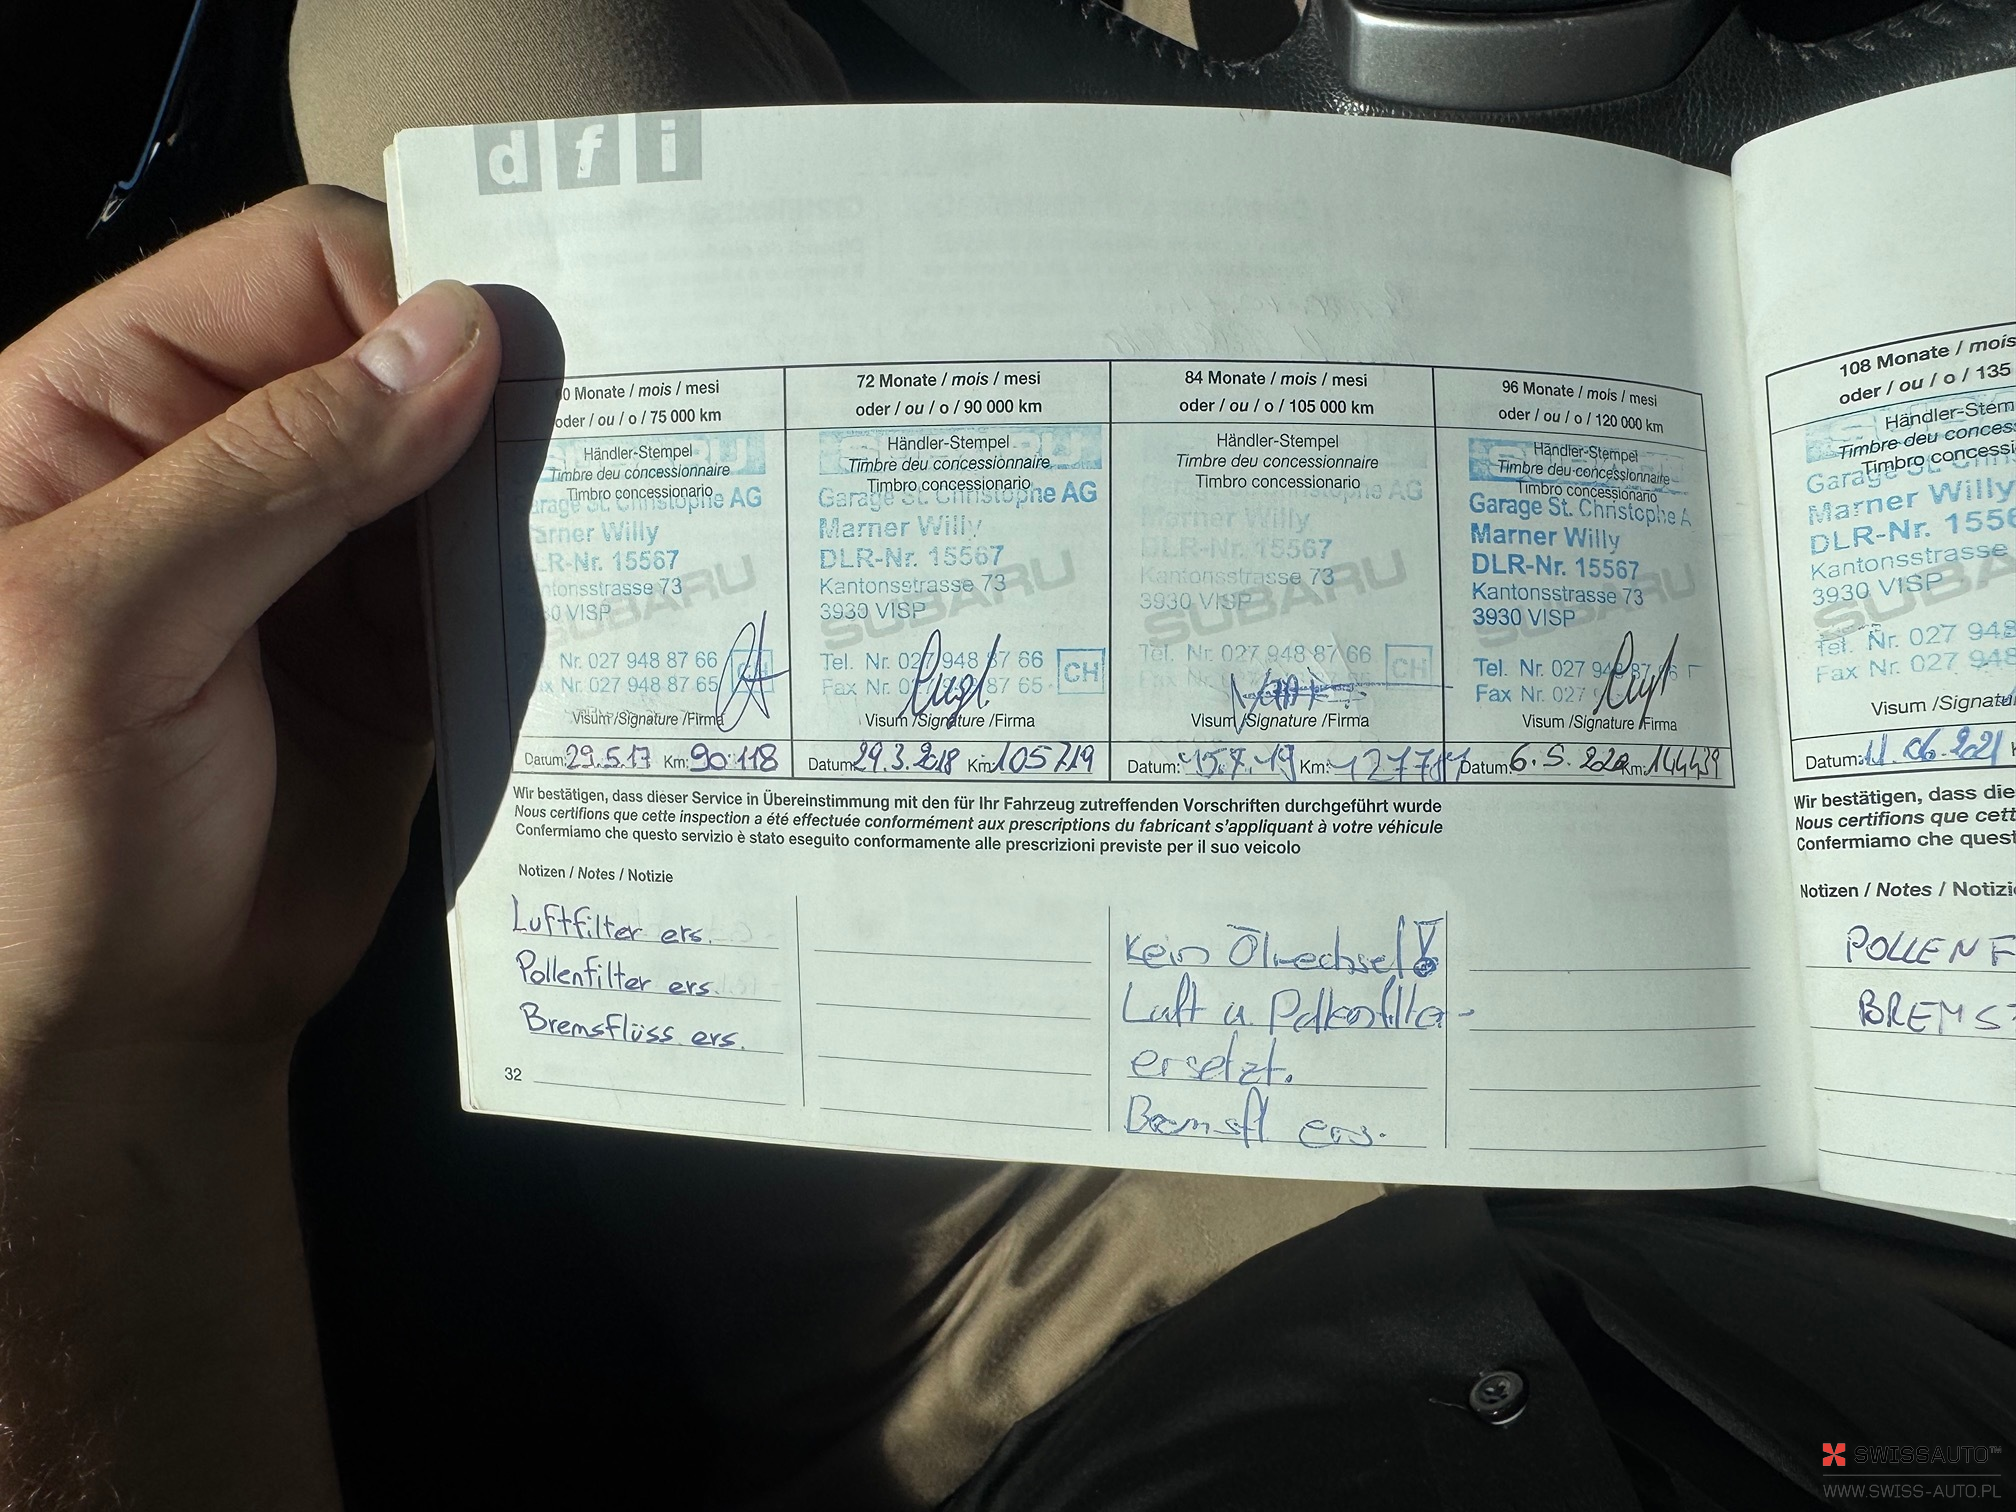 dfi
0 Monate / mois / mesi
oder / ou / o / 75 000 km
Händler-Stempel
Timbre deu concessionnaire
Timbro concessionario
SUBARU
arage St. Christophe AG
arner Willy
LR-Nr. 15567
ntonsstrasse 73
30 VISP
Nr. 027 948 87 66
x Nr. 027 948 87 65
CH
Visum /Signature /Firma
Datum: 29.5.17 Km: 90118
72 Monate / mois / mesi
oder / ou / o / 90 000 km
Händler-Stempel
Timbre deu concessionnaire
Timbro concessionario
SUBARU
Garage St. Christophe AG
Marner Willy
DLR-Nr. 15567
Kantonsstrasse 73
3930 VISP
Tel. Nr. 027 948 87 66
Fax Nr. 87 65
CH
Visum /Signature /Firma
Datum: 29.3.2018 Km: 105719
84 Monate / mois / mesi
oder / ou / o / 105 000 km
Händler-Stempel
Timbre deu concessionnaire
Timbro concessionario
SUBARU
Garage St. Christophe AG
Marner Willy
DLR-Nr. 15567
Kantonsstrasse 73
3930 VISP
Tel. Nr. 027 948 87 66
CH
Visum /Signature /Firma
Datum: 15.7.19 Km:
96 Monate / mois / mesi
oder / ou / o / 120 000 km
Händler-Stempel
Timbre deu concessionnaire
Timbro concessionario
SUBARU
Garage St. Christophe A
Marner Willy
DLR-Nr. 15567
Kantonsstrasse 73
3930 VISP
Tel. Nr. 027 948 87 66
Fax Nr. 027
Visum /Signature /Firma
Datum: 6.5.2020 Km: 144439
Wir bestätigen, dass dieser Service in Übereinstimmung mit den für Ihr Fahrzeug zutreffenden Vorschriften durchgeführt wurde
Nous certifions que cette inspection a été effectuée conformément aux prescriptions du fabricant s'appliquant à votre véhicule
Confermiamo che questo servizio è stato eseguito conformamente alle prescrizioni previste per il suo veicolo
Notizen / Notes / Notizie
Luftfilter ers.
Pollenfilter ers.
Bremsflüss ers.
Kein Ölwechsel!
Luft u. Pollenfilter
ersetzt.
Bremsfl ers.
32
108 Monate / mois
oder / ou / o / 135
Händler-Stem
Timbre deu conces
Timbro concessi
Garage St. Chris
Marner Willy
DLR-Nr. 1556
Kantonsstrasse
3930 VISP
SUBA
Tel. Nr. 027 948
Fax Nr. 027 948
Visum /Signatu
Datum: 11.06.2021
Wir bestätigen, dass die
Nous certifions que cett
Confermiamo che quest
Notizen / Notes / Notizi
POLLENF
BREMS
SWISSAUTO™
WWW.SWISS-AUTO.PL